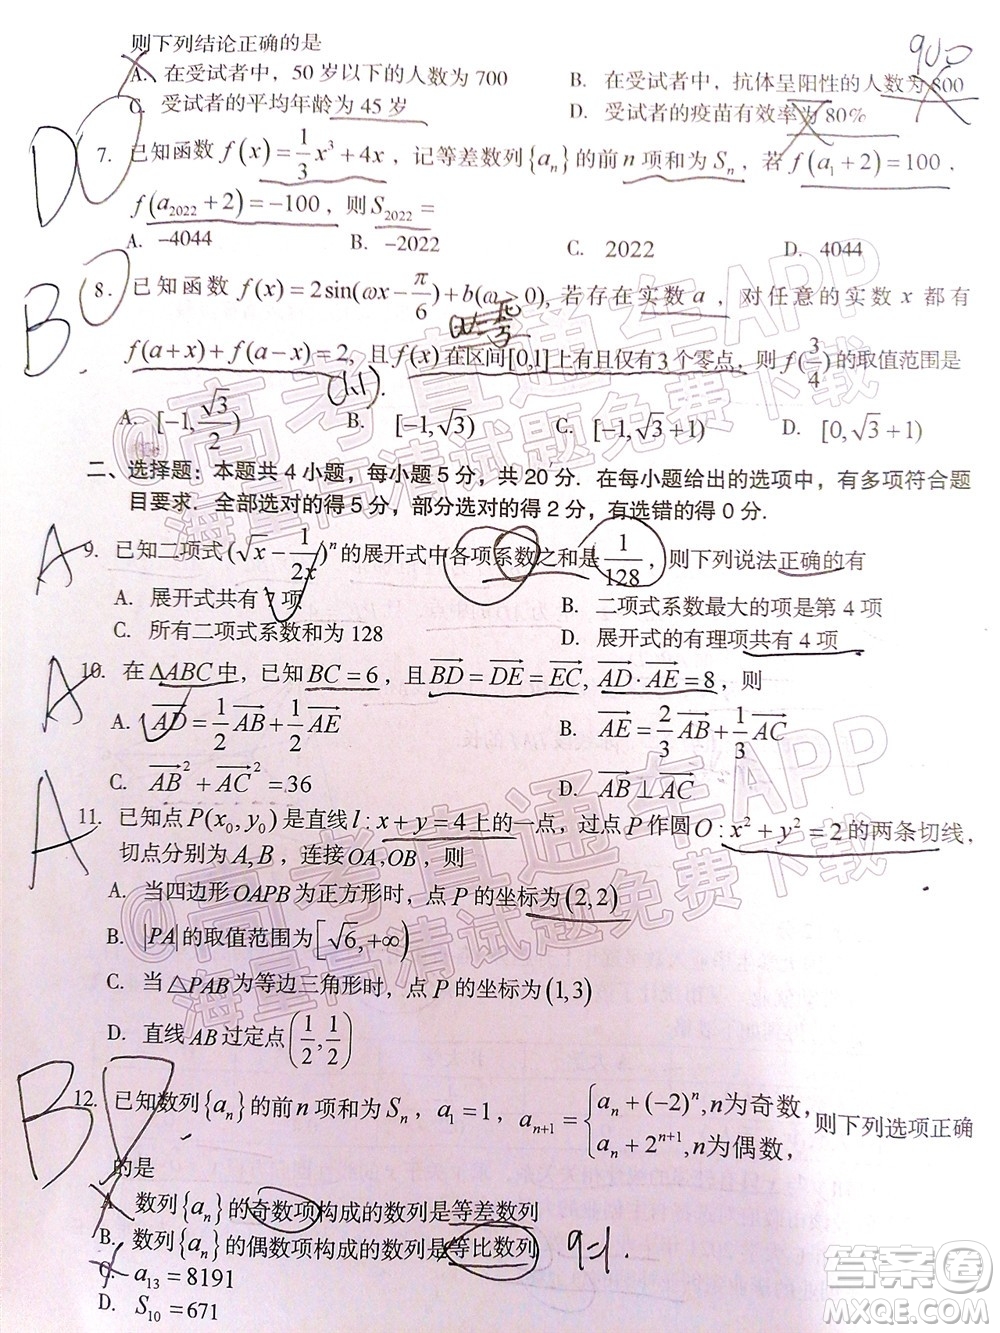 则下列结论正确的是
A. 在受试者中，50 岁以下的人数为 700
B. 在受试者中，抗体呈阳性的人数为 800
900
C. 受试者的平均年龄为 45 岁
D. 受试者的疫苗有效率为 80%
D
7. 已知函数 f(x)=1/3 x³+4x，记等差数列{aₙ}的前 n 项和为 Sₙ，若 f(a₁+2)=100，
f(a₂₀₂₂+2)=-100，则 S₂₀₂₂=
A. -4044 B. -2022 C. 2022 D. 4044
B
8. 已知函数 f(x)=2sin(ωx-π/6)+b(ω>0)，若存在实数 a，对任意的实数 x 都有
f(a+x)+f(a-x)=2，且 f(x)在区间[0,1]上有且仅有 3 个零点，则 f(3/4)的取值范围是
(1,1).
A. [-1,√3/2) B. [-1,√3) C. [-1,√3+1) D. [0,√3+1)
二、选择题：本题共 4 小题，每小题 5 分，共 20 分．在每小题给出的选项中，有多项符合题
目要求．全部选对的得 5 分，部分选对的得 2 分，有选错的得 0 分．
A
9. 已知二项式(√x-1/2x)ⁿ的展开式中各项系数之和是1/128，则下列说法正确的有
A. 展开式共有 7 项
B. 二项式系数最大的项是第 4 项
C. 所有二项式系数和为 128
D. 展开式的有理项共有 4 项
A
10. 在△ABC中，已知BC=6，且 BD→=DE→=EC→，AD→·AE→=8，则
A. AD→=1/2AB→+1/2AE→
B. AE→=2/3AB→+1/3AC→
C. AB→²+AC→²=36
D. AB→⊥AC→
A
11. 已知点 P(x₀,y₀)是直线 l:x+y=4上的一点，过点 P 作圆 O:x²+y²=2的两条切线，
切点分别为 A,B，连接OA,OB，则
A. 当四边形 OAPB 为正方形时，点 P 的坐标为(2,2)
B. |PA|的取值范围为[√6,+∞)
C. 当△PAB为等边三角形时，点 P 的坐标为(1,3)
D. 直线 AB 过定点(1/2,1/2)
BD
12. 已知数列{aₙ}的前 n 项和为 Sₙ，a₁=1，aₙ₊₁={aₙ+(-2)ⁿ,n为奇数，aₙ+2ⁿ⁺¹,n为偶数，则下列选项正确
的是
A. 数列{aₙ}的奇数项构成的数列是等差数列
B. 数列{aₙ}的偶数项构成的数列是等比数列
q=1.
C. a₁₃=8191
D. S₁₀=671
@高考直通车APP
海量高清试题免费下载
@高考直通车APP
海量高清试题免费下载
答案圈
MXQE.COM